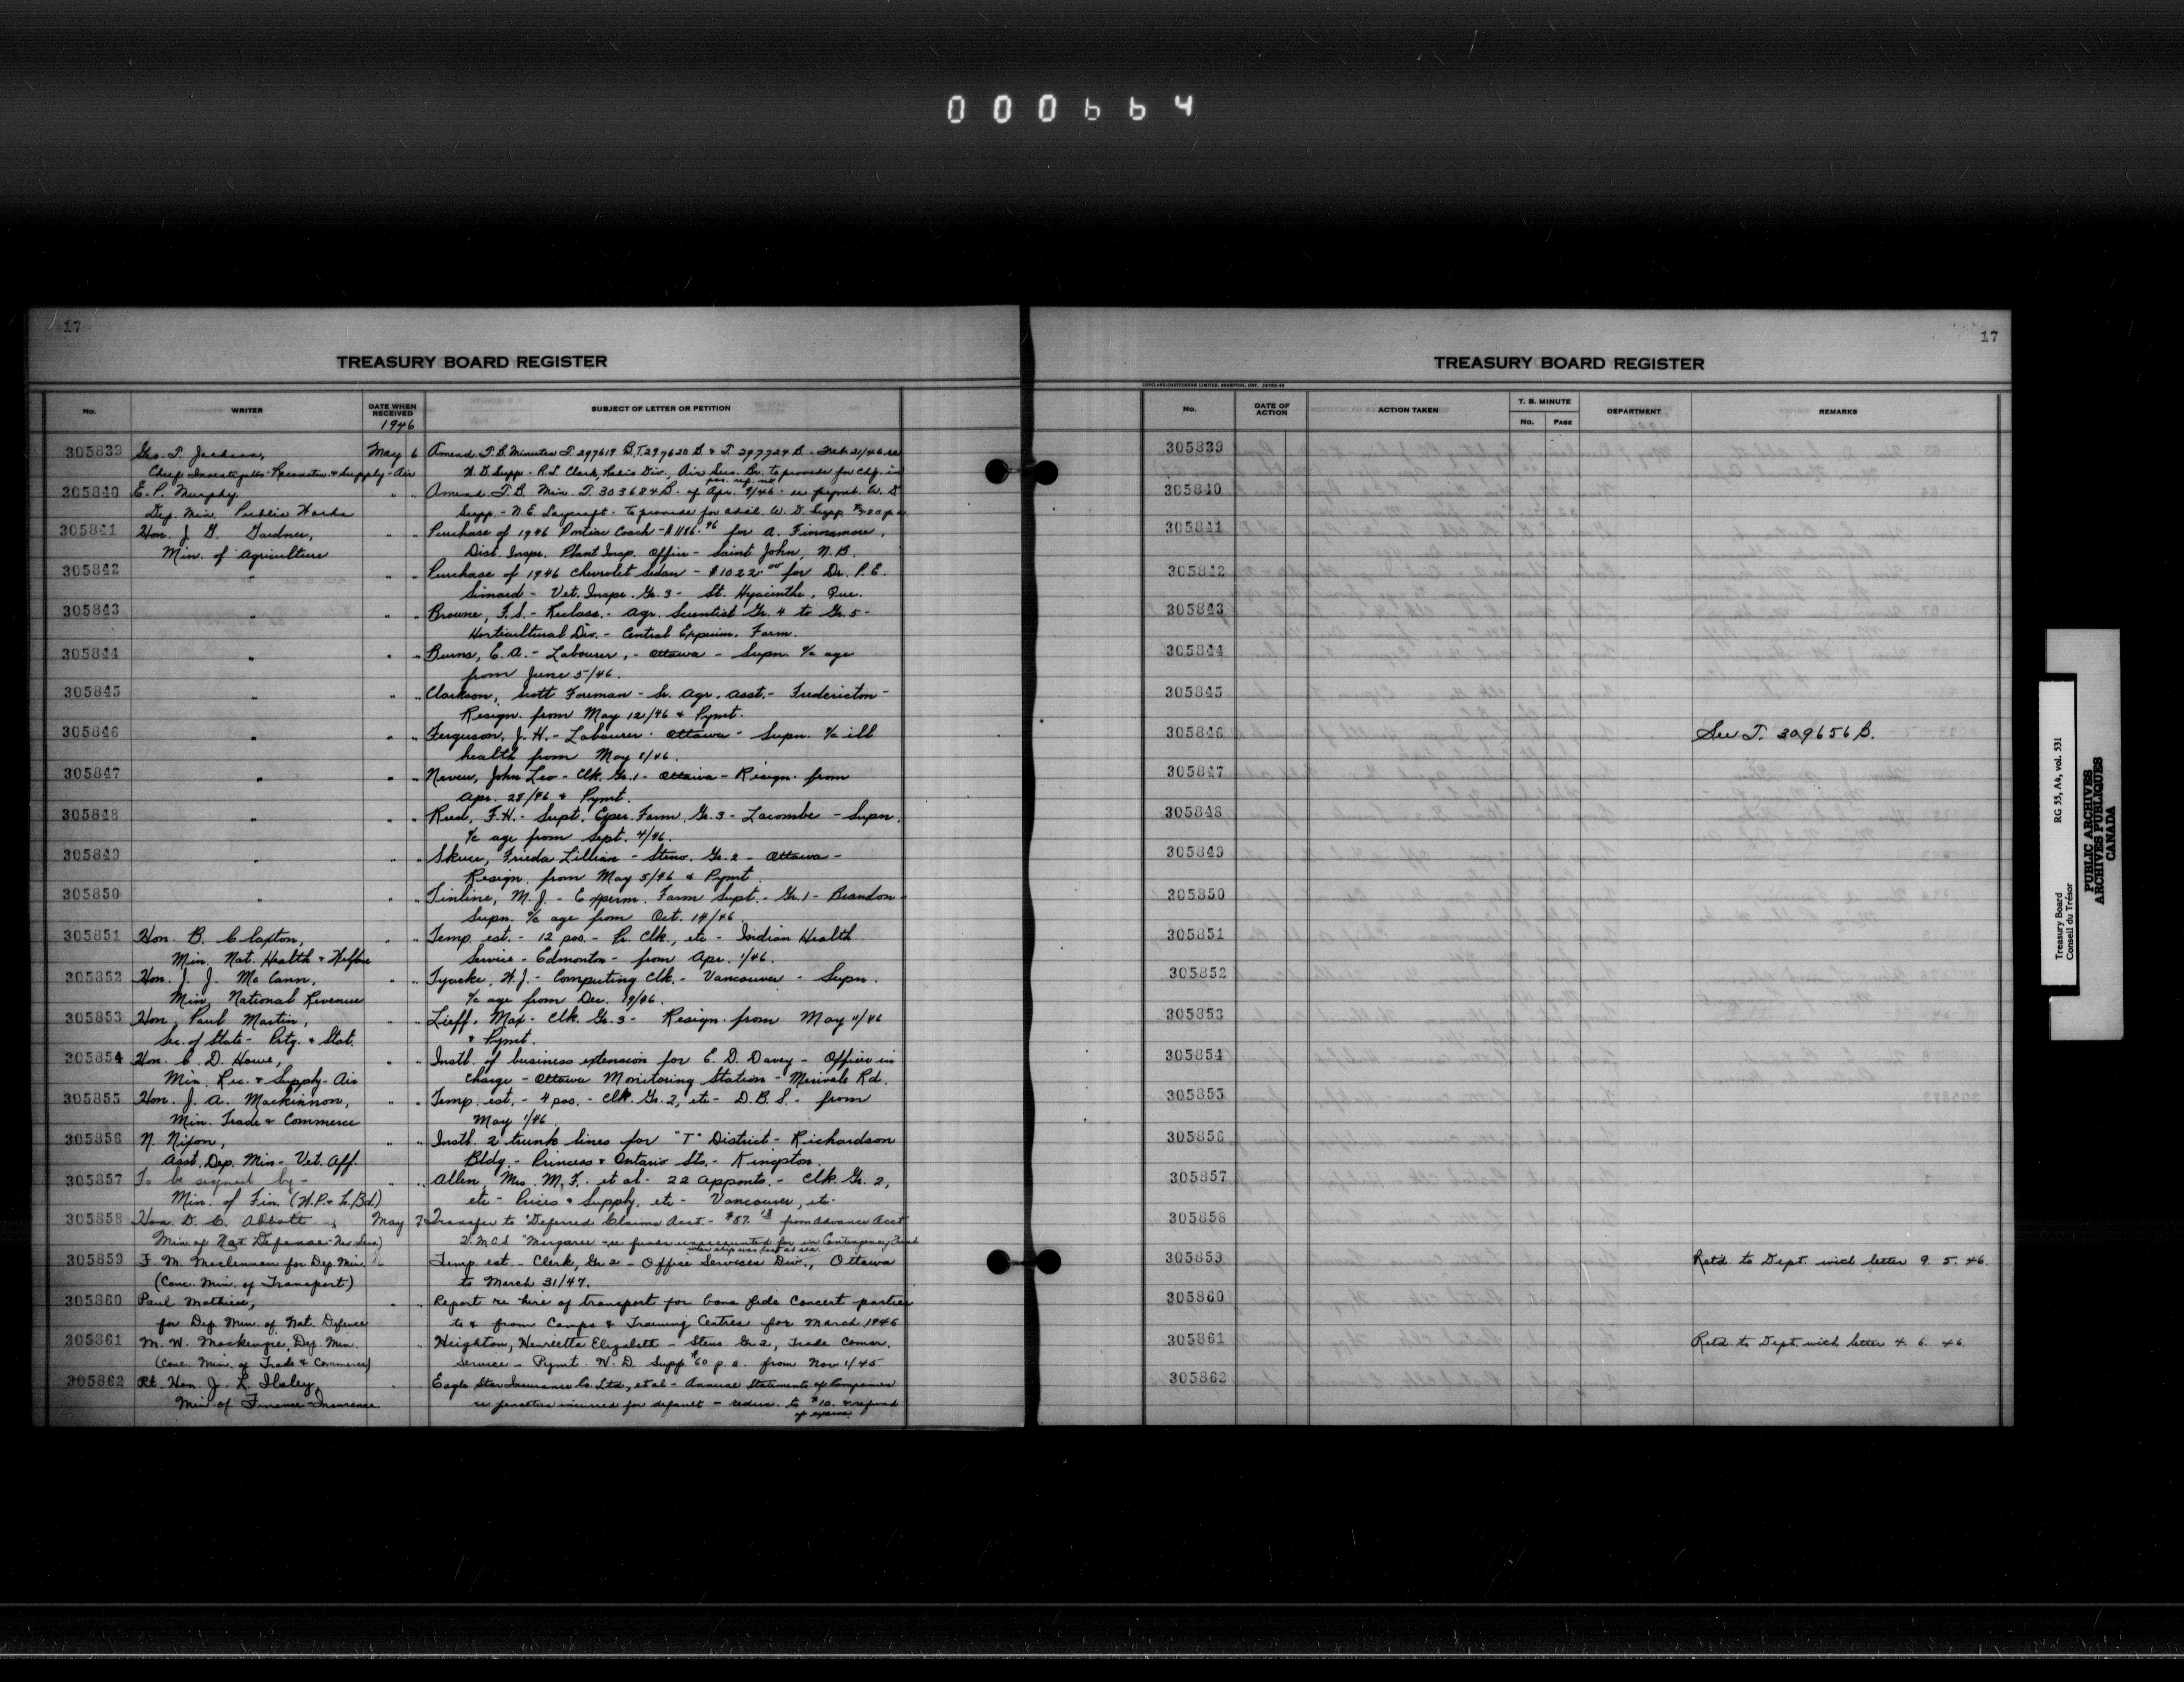 000664
17
TREASURY BOARD REGISTER
No. WRITER DATE WHEN RECEIVED SUBJECT OF LETTER OR PETITION
1946
305839 Geo. T. Jackson, May 6 Amend T.B. Minutes T. 297619 B, T. 297620 B. & T. 297724 B. - Feb. 21/46 re
Chief Investigator - Reconstn. & Supply - Air W. D. Supp. - R. S. Clark, Radio Div., Air Ser. Br. to provide for clsf. in
pos. ref. no.
305840 E. P. Murphy " " Amend T.B. Min. T. 303684 B. of Apr. 9/46 - re paymt. W. D.
Dep. Min. Public Works Supp. - N. E. Laycraft - to provide for addl. W. D. Supp.
305841 Hon. J. G. Gardner, " " Purchase of 1946 Pontiac Coach - $1186.96 for A. Finnamore,
Min. of Agriculture Dist. Inspr. Plant Insp. Office - Saint John, N.B.
305842 " " " Purchase of 1946 Chevrolet Sedan - $1022.00 for Dr. P. E.
Simard - Vet. Inspr. Gr. 3 - St. Hyacinthe, Que.
305843 " " " Browne, F. S. - Reclass. - Agr. Scientist Gr. 4 to Gr. 5 -
Horticultural Div. - Central Experim. Farm.
305844 " " " Burns, E. A. - Labourer, - Ottawa - Supn. a/c age
from June 5/46.
305845 " " " Clarkson, Scott Foreman - Sr. Agr. Asst. - Fredericton -
Resign. from May 12/46 & Pymt.
305846 " " " Ferguson, J. H. - Labourer - Ottawa - Supn. a/c ill
health from May 8/46.
305847 " " " Neveu, John Leo - Clk. Gr. 1 - Ottawa - Resign. from
Apr. 28/46 & Pymt.
305848 " " " Reed, F. H. - Supt. Exper. Farm. Gr. 3 - Lacombe - Supn.
a/c age from Sept. 4/46.
305849 " " " Skuce, Frieda Lillian - Steno. Gr. 2 - Ottawa -
Resign. from May 5/46 & Pymt.
305850 " " " Tinline, M. J. - Experm. Farm Supt. - Gr. 1 - Brandon -
Supn. a/c age from Oct. 14/46.
305851 Hon. B. Claxton, " " Temp. est. - 12 pos. - Pr. Clk., etc - Indian Health
Min. Nat. Health & Welfare Service - Edmonton - from Apr. 1/46.
305852 Hon. J. J. McCann, " " Tyacke, W. J. - Computing Clk. - Vancouver - Supn.
Min. National Revenue a/c age from Dec. 19/46.
305853 Hon. Paul Martin, " " Lieff, Max - Clk. Gr. 3 - Resign. from May 11/46
Sec. of State - Prtg. & Stat. & Pymt.
305854 Hon. C. D. Howe, " " Instl. of business extension for E. D. Davey - Officer in
Min. Rec. & Supply - Air Charge - Ottawa Monitoring Station - Merivale Rd.
305855 Hon. J. A. Mackinnon, " " Temp. est. - 4 pos. - Clk. Gr. 2, etc - D. B. S. - from
Min. Trade & Commerce May 1/46.
305856 N. Nixon, " " Instl. 2 trunk lines for "T" District - Richardson
Asst. Dep. Min - Vet. Aff. Bldg. - Princess & Ontario Sts. - Kingston.
305857 To be signed by - " " Allen, Mrs. M. F. et al - 22 Appmts. - Clk. Gr. 2,
Min. of Fin. (W. P. & T. Bd.) etc - Prices & Supply, etc - Vancouver, etc.
305858 Hon. D. C. Abbott May 7 Transfer to Deferred Claims Acct. - $87.13 from Advance Acct
Min of Nat. Defense - Nav. Serv.) H.M.C.S. "Margaree - re funds unaccounted for in Contingency Fund
when ship was lost at sea.
305859 F. M. Maclennan for Dep. Min. Temp. est. - Clerk, Gr 2 - Office Services Div., Ottawa
(Conc. Min. of Transport) to March 31/47.
305860 Paul Mathieu, " " Report re hire of transport for bona fide concert parties
for Dep. Min. of Nat. Defence to & from Camps & Training Centres for March 1946
305861 M. W. Mackenzie, Dep. Min. " Heighton, Henrietta Elizabeth - Steno Gr 2, Trade Comsr.
(Conc. Min. of Trade & Commerce) Service - Pymt. W. D. Supp $60 p. a. from Nov 1/45
305862 Rt. Hon. J. L. Ilsley " " Eagle Star Insurance Co. Ltd, et al - Annual Statements of Companies
Min of Finance - Insurance re penalties incurred for default - reduc. to $10. & refund
of excess.
17
TREASURY BOARD REGISTER
COPELAND-CHATTERSON LIMITED, BRAMPTON, ONT.
No. DATE OF ACTION ACTION TAKEN T. B. MINUTE No. PAGE DEPARTMENT REMARKS
305839
305840
305841
305842
305843
305844
305845
305846 See T. 309656 B.
305847
305848
305849
305850
305851
305852
305853
305854
305855
305856
305857
305858
305859 Retd. to Dept. with letter 9. 5. 46.
305860
305861 Retd. to Dept. with letter 4. 6. 46.
305862
Treasury Board RG 55, A4, vol. 531
Conseil du Trésor
PUBLIC ARCHIVES
ARCHIVES PUBLIQUES
CANADA